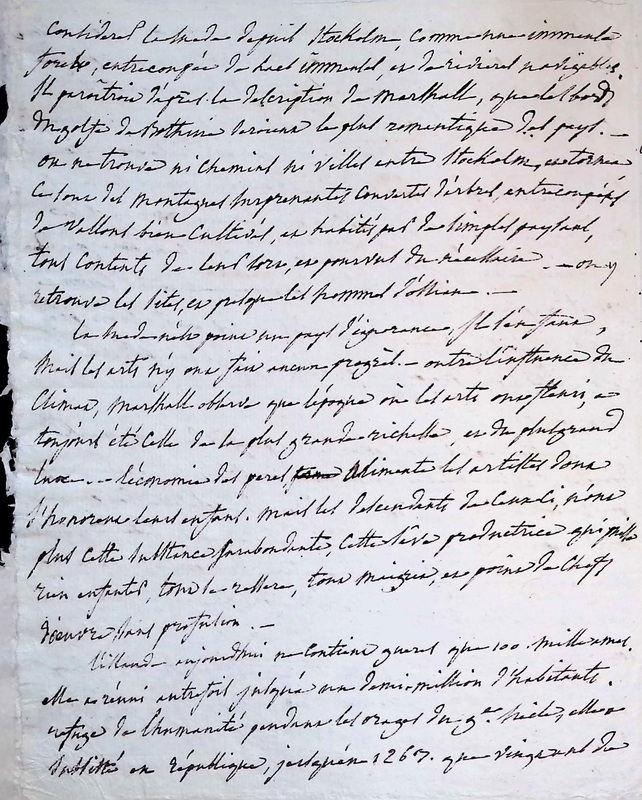 Considérés la Suede depuis Stockolm, comme une immense
forets, entrecoupée de lacs immenses, et de rivieres navigables.
Il paroitroit d'après la description de Marshall, que les bords
du golfe de Bothnie seroient le plus romantique des pays. —
on ne trouve ni chemins ni villes entre Stockolm, et tornea
ce sont des montagnes surprenantes couvertes d'arbres, entrecoupées
de vallons bien cultivés, et habités par de simples paysans,
tous contents de leur sort, et pourvus du nécessaire — on y
retrouve les sites, et presque les hommes d'Ossian. —
la Suede n'est point un pays d'ignorance, Il s'en faut,
mais les arts n'y ont fait aucun progrès. — outre l'influence du
Climat, Marshall observe que l'époque où les arts ont fleuri, a
toujours été celle de la plus grande richesse, et du plus grand
luxe. — l'économie des peres alimente les artistes dont
s'honorent leurs enfans. mais les descendants de ceux-ci, n'ont
plus cette substance surabondante, cette sève productrice qui
rien enfants, tout se resserre, tout maigrit, et point de chefs
d'oeuvre sans profusion. —
l'islande aujourdhui ne contient gueres que 100. mille ames.
elle a réuni autrefois jusqu'à un demi-million d'habitants.
refuge de l'humanité pendant les orages du 9e. siècle, elle a
subsisté en république, jusqu'en 1267. que vingt ans de